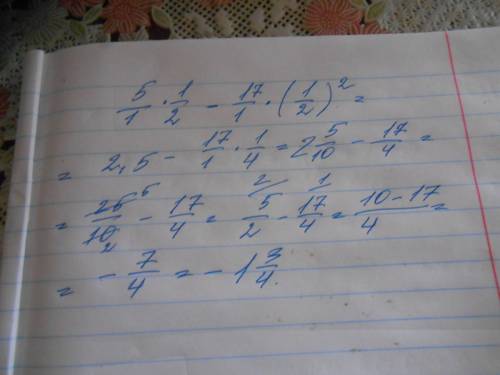 5/1 · 1/2 - 17/1 · (1/2)² =
= 2,5 - 17/1 · 1/4 = 2 5/10 - 17/4 =
= 25/10 5 2 - 17/4 = 5/2 2/ - 17/4 1/ = 10-17/4 =
= - 7/4 = - 1 3/4.